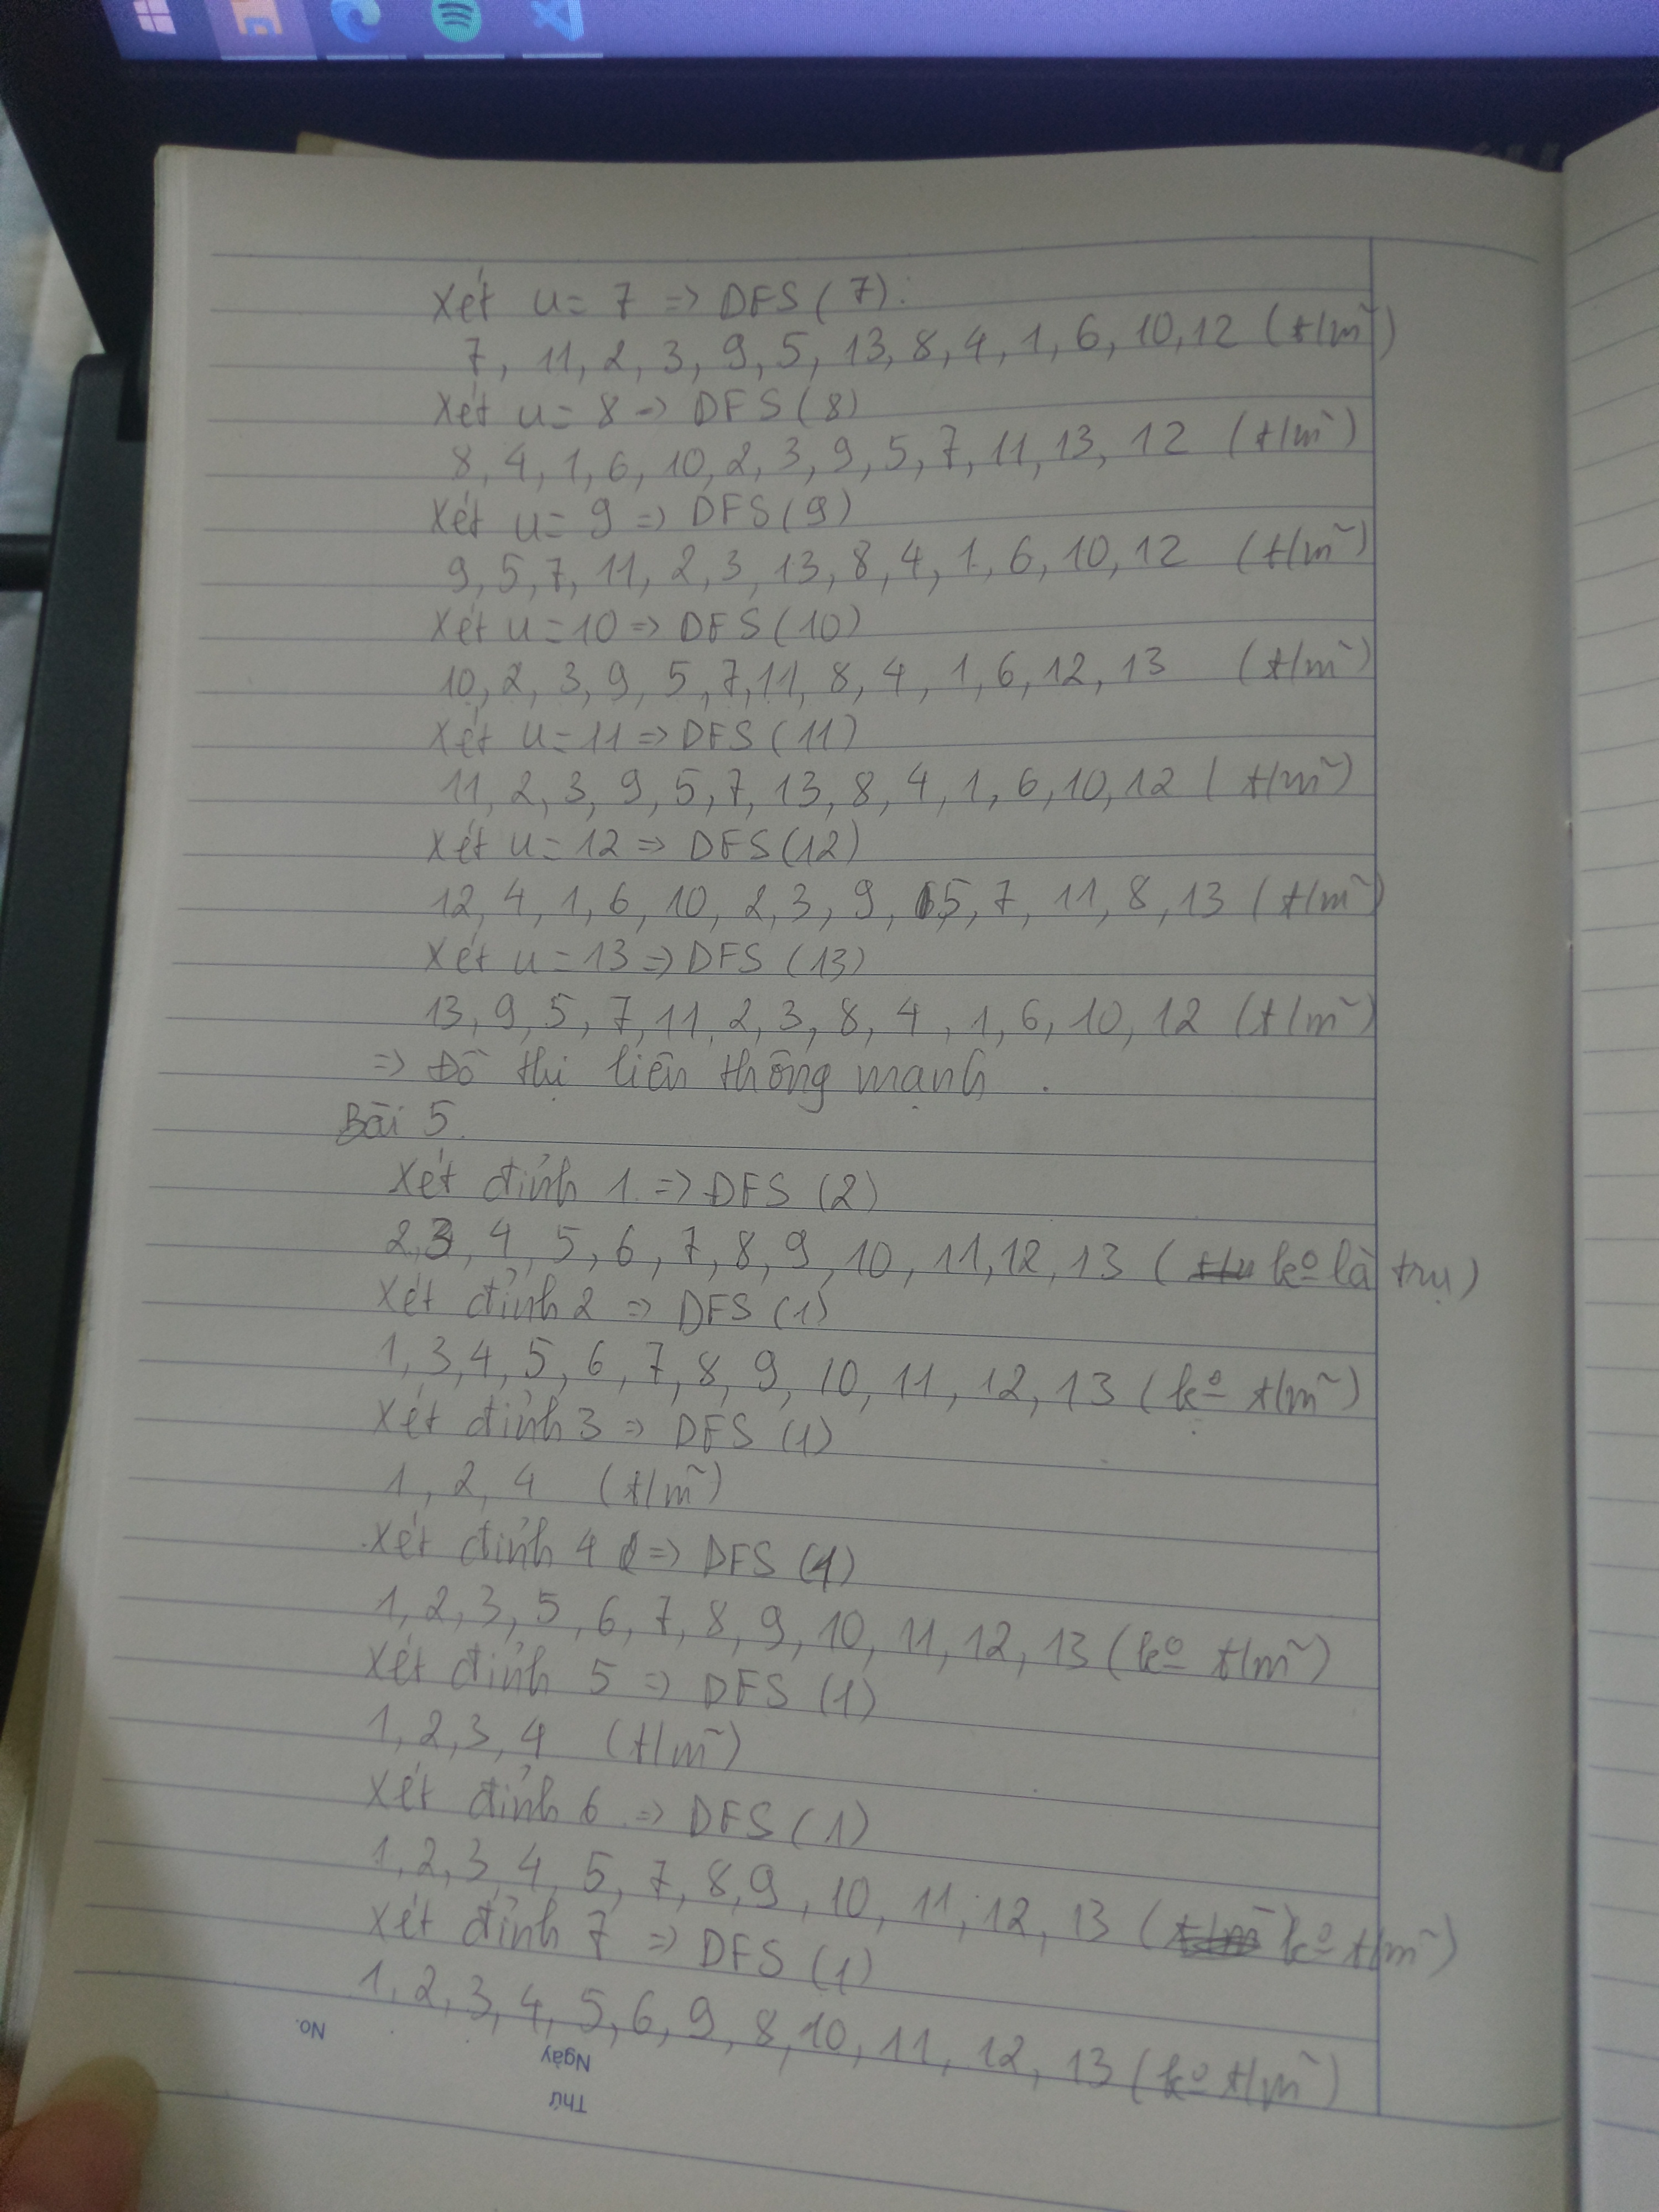 Xét u = 7 => DFS (7):
7, 11, 2, 3, 9, 5, 13, 8, 4, 1, 6, 10, 12 (t/m~)
Xét u = 8 => DFS (8)
8, 4, 1, 6, 10, 2, 3, 9, 5, 7, 11, 13, 12 (t/m~)
Xét u = 9 => DFS (9)
9, 5, 7, 11, 2, 3, 13, 8, 4, 1, 6, 10, 12 (t/m~)
Xét u = 10 => DFS (10)
10, 2, 3, 9, 5, 7, 11, 8, 4, 1, 6, 12, 13 (t/m~)
Xét u = 11 => DFS (11)
11, 2, 3, 9, 5, 7, 13, 8, 4, 1, 6, 10, 12 (t/m~)
Xét u = 12 => DFS (12)
12, 4, 1, 6, 10, 2, 3, 9, 5, 7, 11, 8, 13 (t/m~)
Xét u = 13 => DFS (13)
13, 9, 5, 7, 11, 2, 3, 8, 4, 1, 6, 10, 12 (t/m~)
=> Đồ thị liên thông mạnh.
Bài 5.
Xét đỉnh 1 => DFS (2)
2, 3, 4, 5, 6, 7, 8, 9, 10, 11, 12, 13 (kº là trụ)
Xét đỉnh 2 => DFS (1)
1, 3, 4, 5, 6, 7, 8, 9, 10, 11, 12, 13 (kº t/m~)
Xét đỉnh 3 => DFS (1)
1, 2, 4 (t/m~)
Xét đỉnh 4 => DFS (1)
1, 2, 3, 5, 6, 7, 8, 9, 10, 11, 12, 13 (kº t/m~)
Xét đỉnh 5 => DFS (1)
1, 2, 3, 4 (t/m~)
Xét đỉnh 6 => DFS (1)
1, 2, 3, 4, 5, 7, 8, 9, 10, 11, 12, 13 (kº t/m~)
Xét đỉnh 7 => DFS (1)
1, 2, 3, 4, 5, 6, 9, 8, 10, 11, 12, 13 (kº t/m~)
No.
Ngày
Thứ